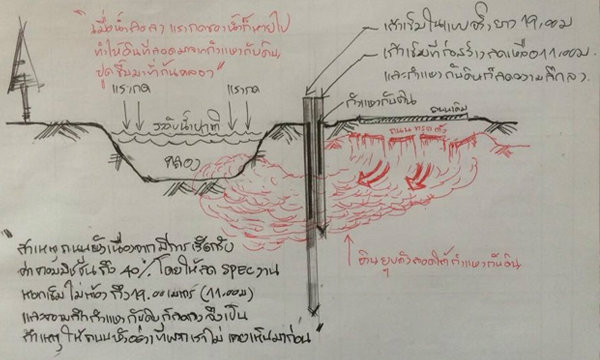 "เมื่อน้ำลดลง แรงกดของน้ำก็หายไป
ทำให้ดินที่ลอดมาจากกำแพงกันดิน
ปูดขึ้นมาที่ก้นคลอง"
แรงกด
แรงกด
ระดับน้ำปกติ
คลอง
เสาเข็มในแบบจริงยาว 19.00ม
เสาเข็มที่ก่อสร้างลดเหลือ 11.00ม.
และกำแพงกันดินก็ลดความลึกลง
กำแพงกันดิน
ถนนเดิม
ถนนทรุดตัว
ดินยุบตัวลอดใต้กำแพงกันดิน
"สาเหตุถนนพังเนื่องจากมีการเรียกรับ
ค่าคอมมิชชั่นถึง 40% โดยให้ลด SPEC งาน
ตอกเข็มไม่ต้องถึง 19.00 เมตร (11.00ม)
และความลึกกำแพงกันดินก็ลดลง จึงเป็น
สาเหตุให้ถนนพังอย่างที่พวกเราไม่เคยเห็นมาก่อน"